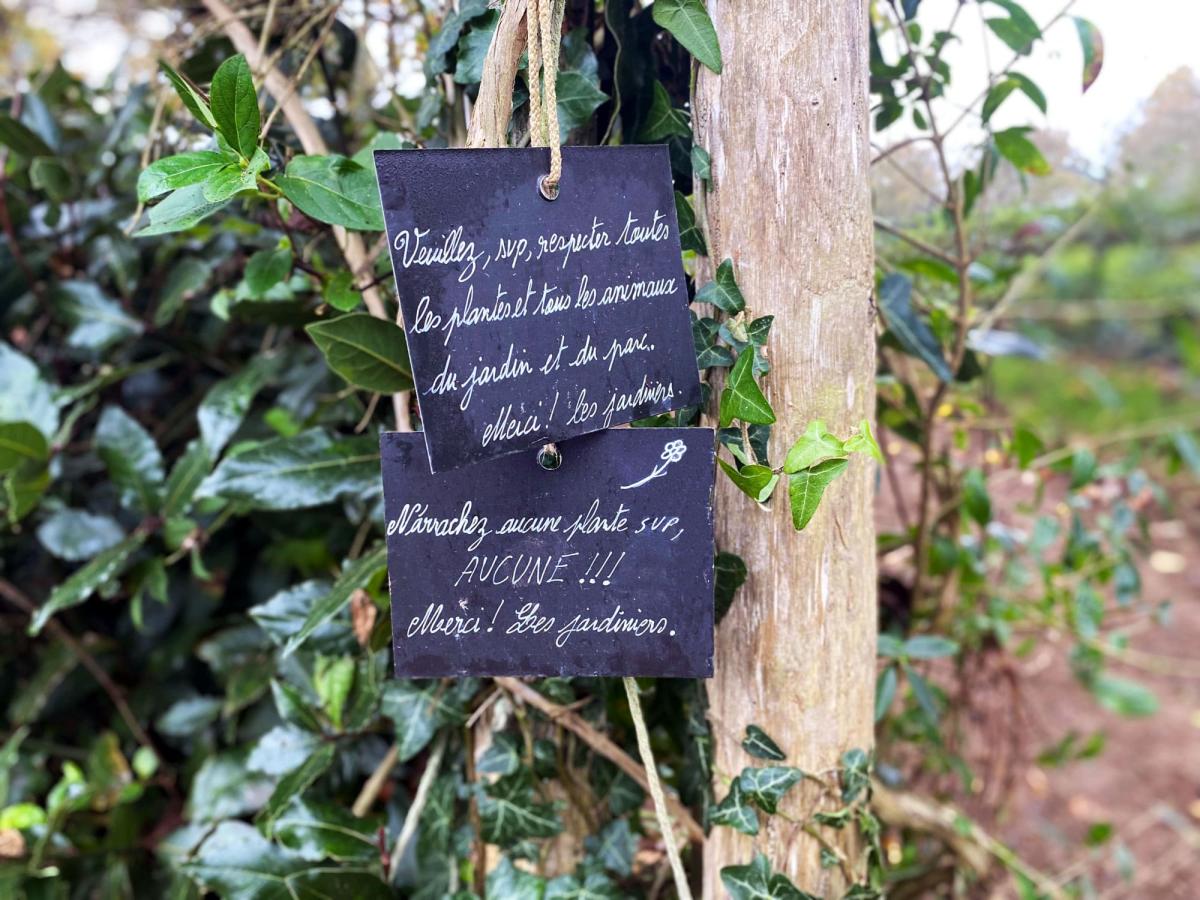 Veuillez, svp, respecter toutes
les plantes et tous les animaux
du jardin et du parc.
Merci! Les jardiniers.
N'arrachez aucune plante SVP,
AUCUNE !!!
Merci! Les jardiniers.